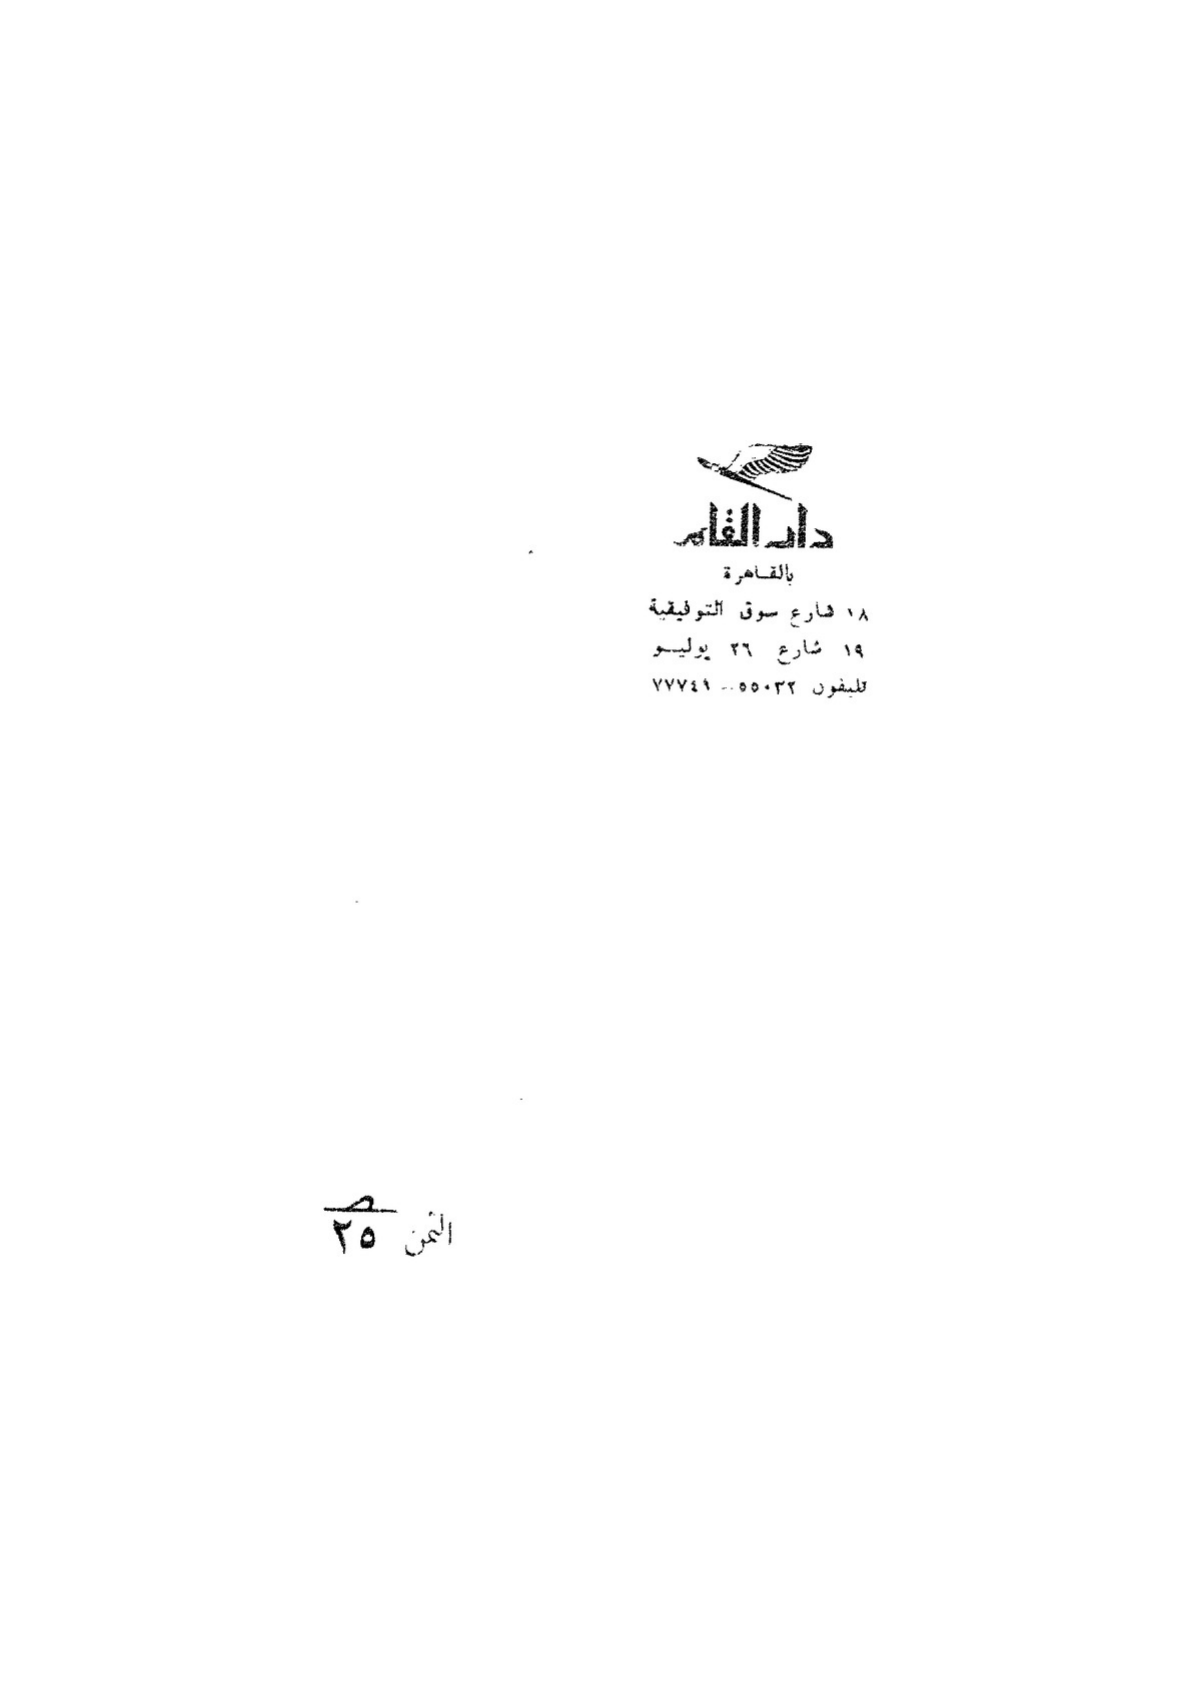 دار القلم
بالقاهرة
١٨ شارع سوق التوفيقية
١٩ شارع ٢٦ يوليو
تليفون ٥٥٠٣٢ - ٧٧٧٤٩
الثمن ٢٥